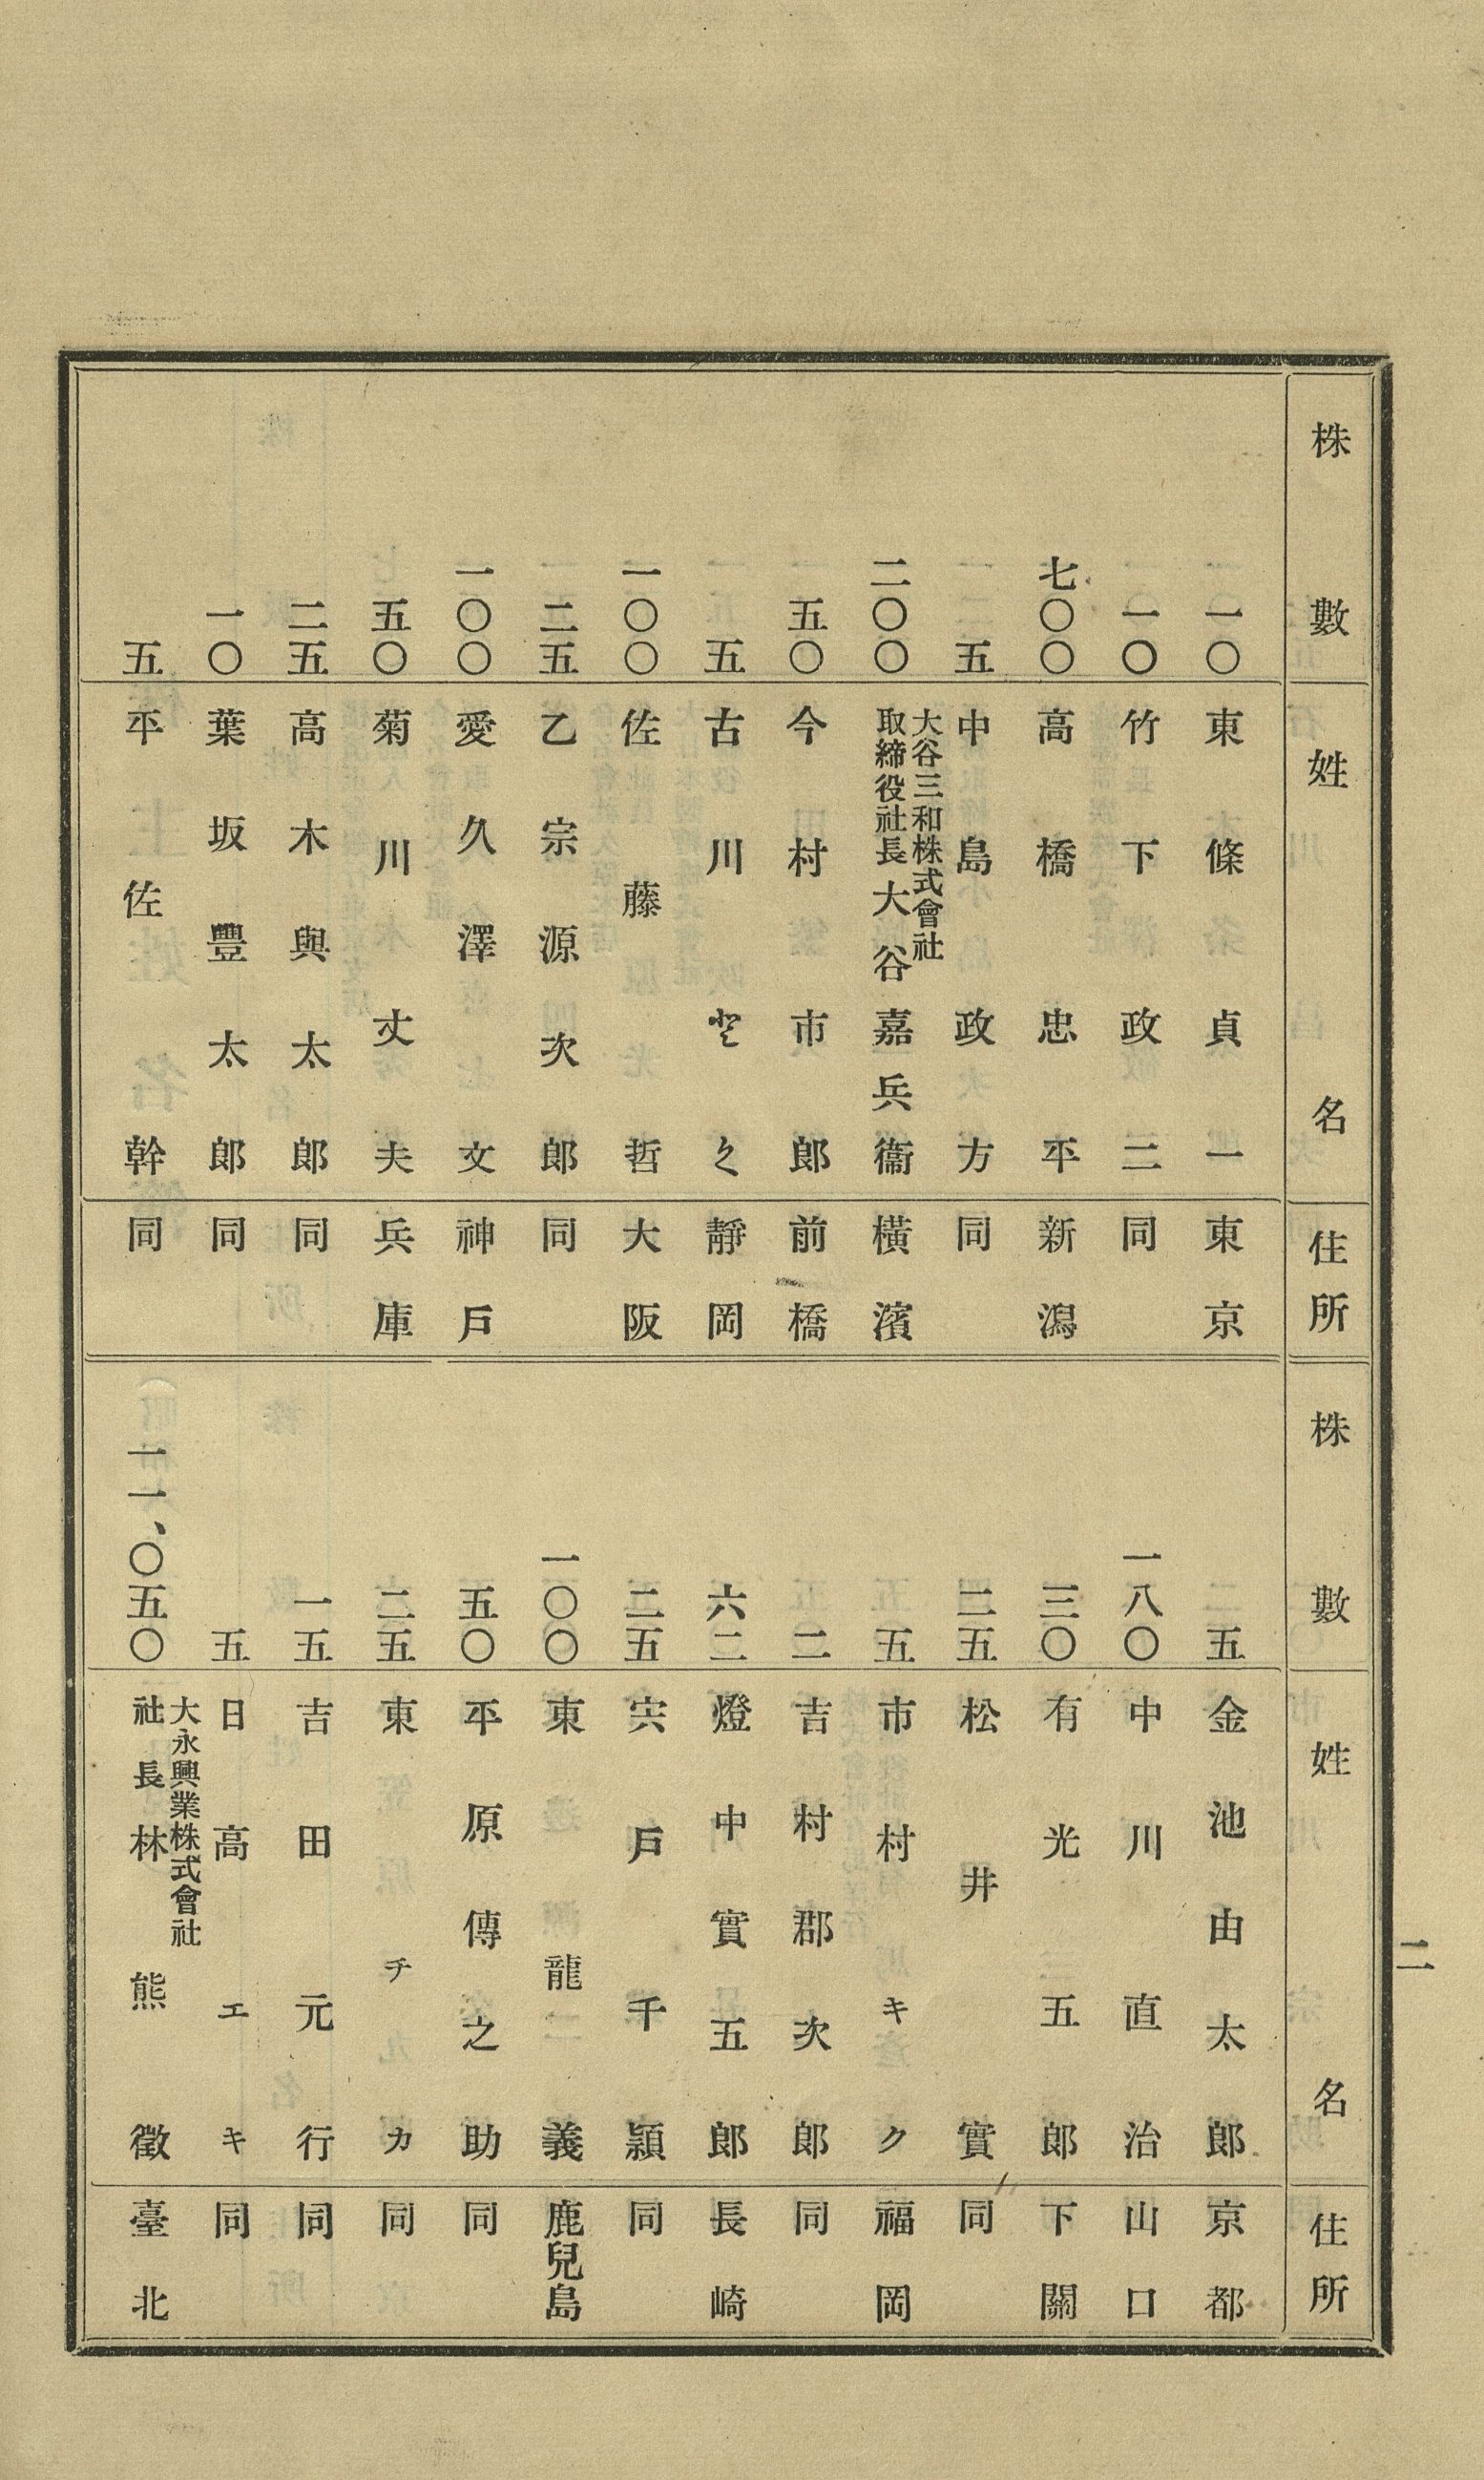 二
株數 姓名 住所
一〇 東條貞一 東京
一〇 竹下政二 同
七〇〇 高橋忠平 新潟
五 中島政方 同
二〇〇 大谷三和株式會社取締役社長 大谷嘉兵衞 橫濱
五〇 今村市郎 前橋
五 古川 靜岡
一〇〇 佐藤哲 大阪
一二五 乙宗源次郎 同
一〇〇 愛久澤文 神戶
五〇 菊川丈夫 兵庫
二五 高木與太郎 同
一〇 葉坂豐太郎 同
五 平佐幹 同
株數 姓名 住所
五 金池由太郎 京都
一八〇 中川直治 山口
三〇 有光五郎 下關
二五 松井實 同
五 市村キク 福岡
二 吉村郡次郎 同
六二 燈中實五郎 長崎
二五 宍戶千頴 同
一〇〇 東龍義 鹿兒島
五〇 平原傳之助 同
二五 東チカ 同
一五 吉田元行 同
五 日高エキ 同
一一、〇五〇 大永興業株式會社社長 林熊徵 臺北